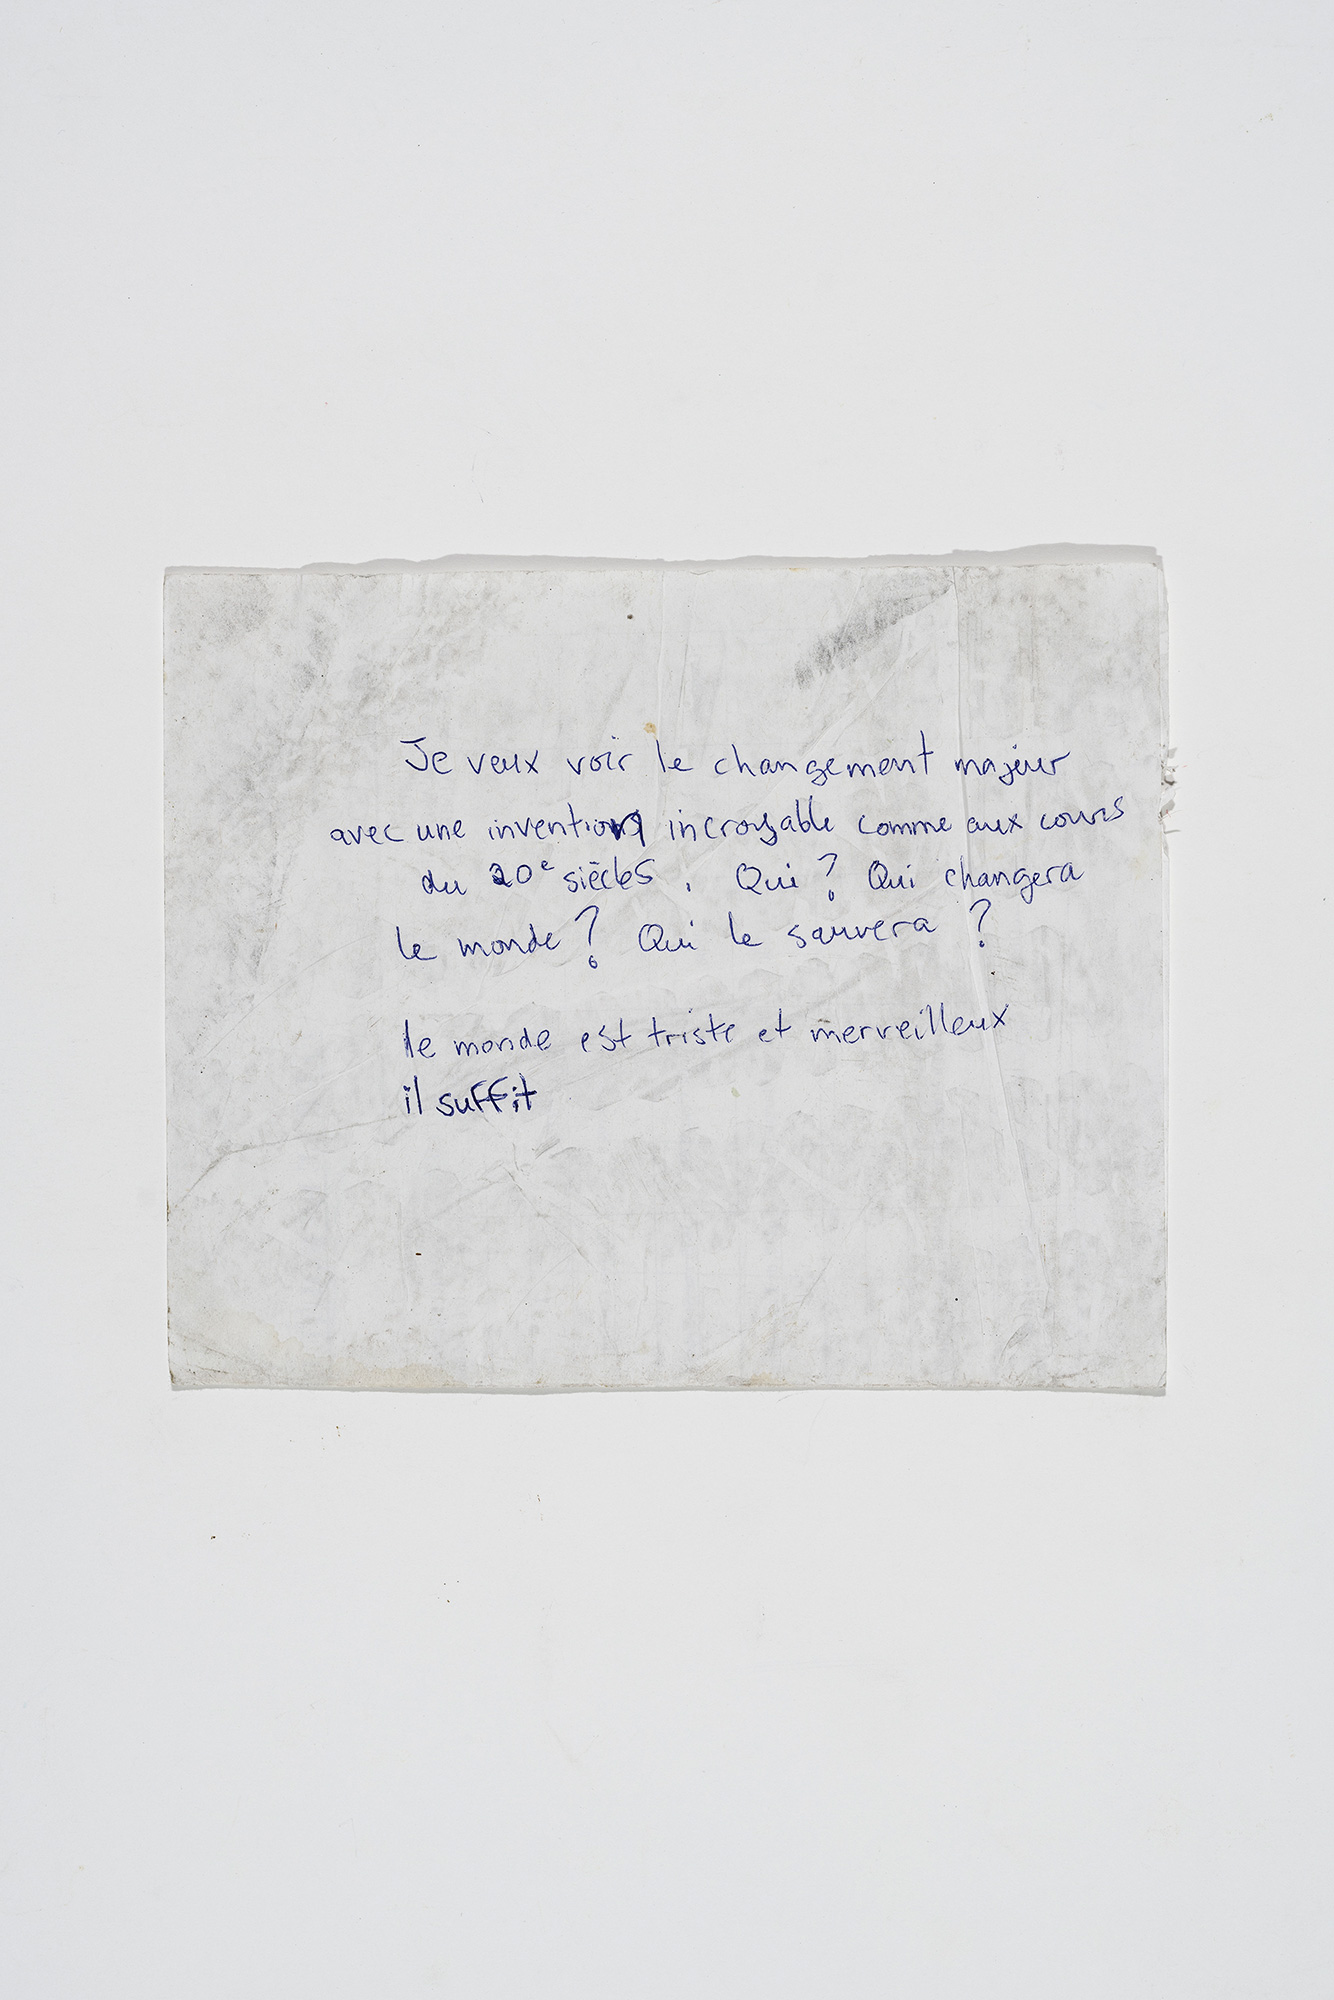 Je veux voir le changement majeur
avec une invention incroyable comme aux cours
du 20e siècles. Qui? Qui changera
le monde? Qui le sauvera?
le monde est triste et merveilleux
il suffit